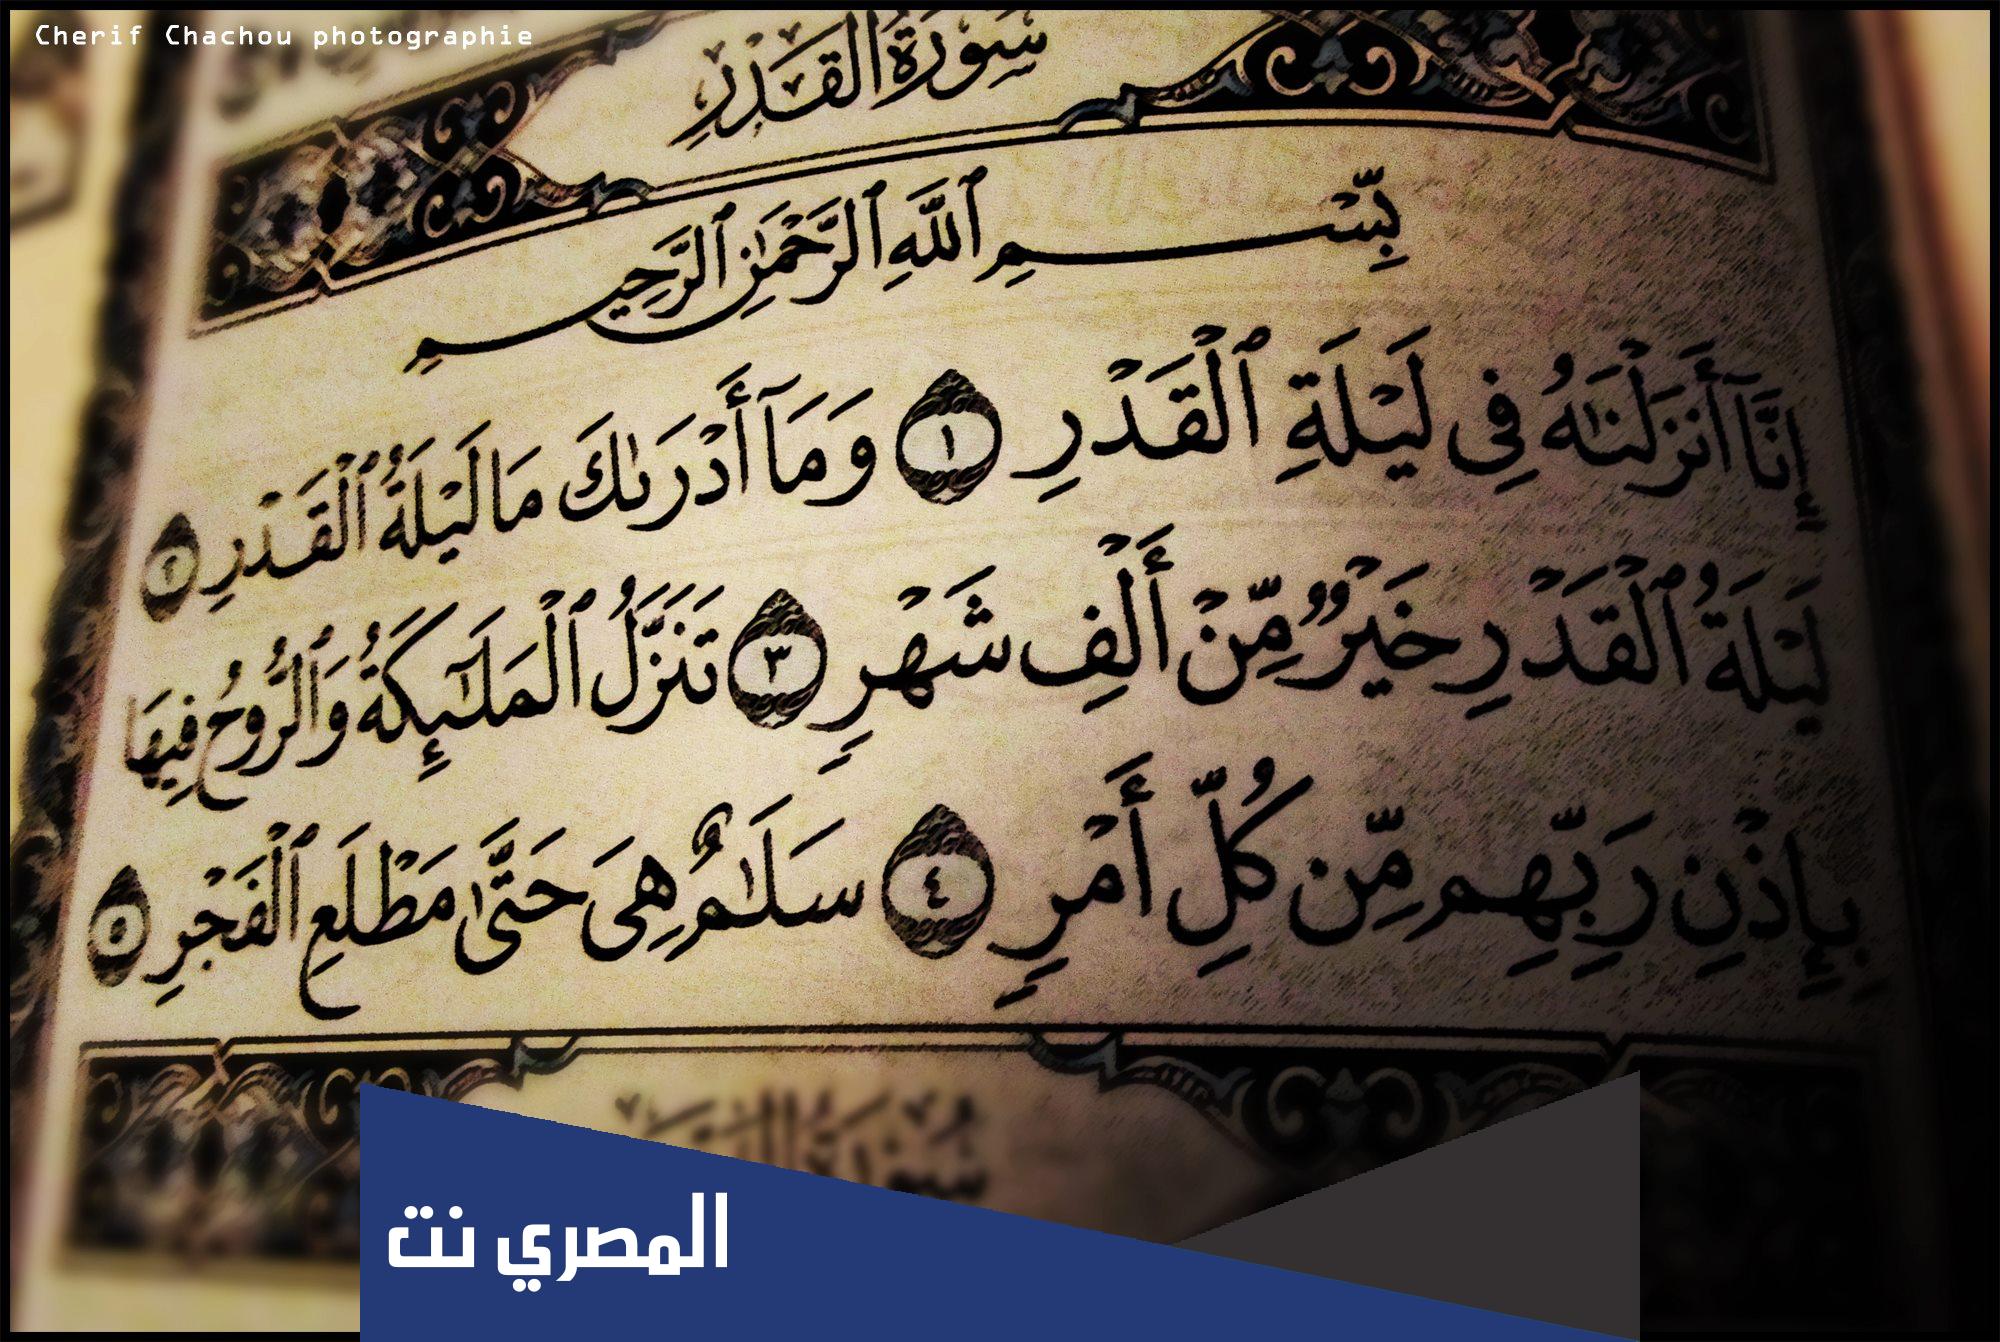 Cherif Chachou photographie
سُورَةُ القَدْرِ
بِسْمِ ٱللَّهِ ٱلرَّحْمَٰنِ ٱلرَّحِيمِ
إِنَّآ أَنزَلْنَٰهُ فِى لَيْلَةِ ٱلْقَدْرِ ١ وَمَآ أَدْرَىٰكَ مَا لَيْلَةُ ٱلْقَدْرِ ٢
لَيْلَةُ ٱلْقَدْرِ خَيْرٌ مِّنْ أَلْفِ شَهْرٍ ٣ تَنَزَّلُ ٱلْمَلَٰٓئِكَةُ وَٱلرُّوحُ فِيهَا
بِإِذْنِ رَبِّهِم مِّن كُلِّ أَمْرٍ ٤ سَلَٰمٌ هِىَ حَتَّىٰ مَطْلَعِ ٱلْفَجْرِ ٥
سُورَةُ
المصري نت